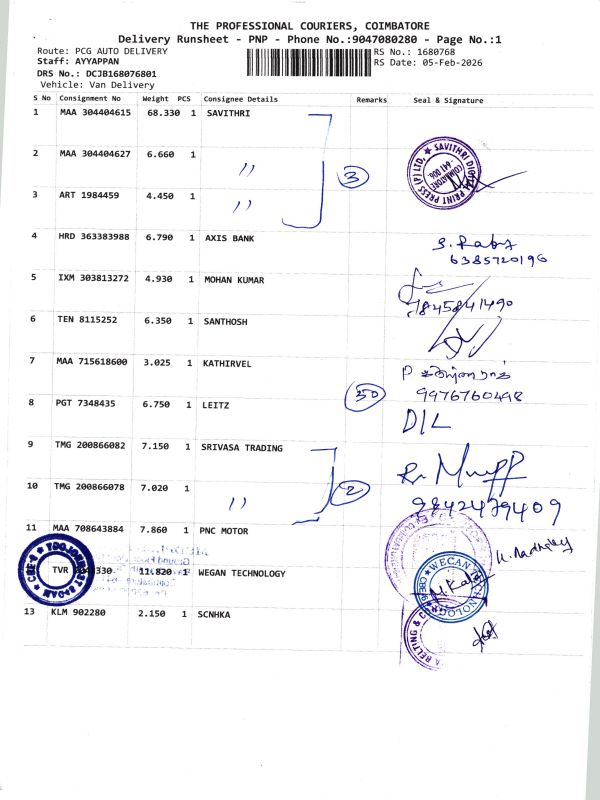 THE PROFESSIONAL COURIERS, COIMBATORE
Delivery Runsheet - PNP - Phone No.:9047080280 - Page No.:1
Route: PCG AUTO DELIVERY
RS No.: 1680768
Staff: AYYAPPAN
RS Date: 05-Feb-2026
DRS No.: DCJB168076801
Vehicle: Van Delivery
S No Consignment No Weight PCS Consignee Details Remarks Seal & Signature
1 MAA 304404615 68.330 1 SAVITHRI
2 MAA 304404627 6.660 1 〃
3
SAVITHRI DIGITAL PRINT PRESS (P) LTD. ★ COIMBATORE 641 006.
3 ART 1984459 4.450 1 〃
4 HRD 363383988 6.790 1 AXIS BANK
6385720196
5 IXM 303813272 4.930 1 MOHAN KUMAR
9845841490
6 TEN 8115252 6.350 1 SANTHOSH
7 MAA 715618600 3.025 1 KATHIRVEL
9976760498
50
8 PGT 7348435 6.750 1 LEITZ
D/L
9 TMG 200866082 7.150 1 SRIVASA TRADING
10 TMG 200866078 7.020 1 〃
2
9842479409
11 MAA 708643884 7.860 1 PNC MOTOR
TVR 11.820 1 WEGAN TECHNOLOGY
WECAN TECHNOLOGY
CBE
13 KLM 902280 2.150 1 SCNHKA
BELTING &